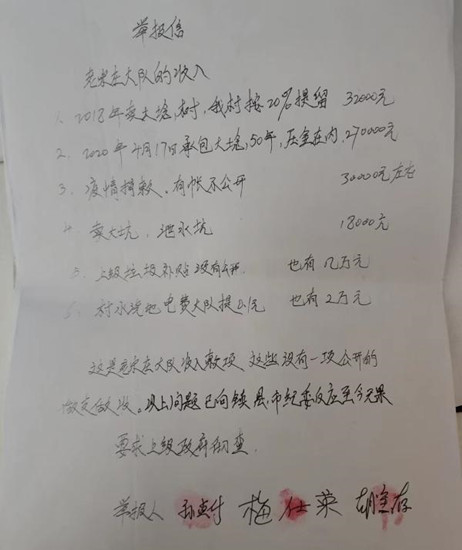 举报信
克米庄大队的收入
1. 2018年卖大埝,树,我村按20%提留 32000元
2. 2020年4月17日承包大埝,50年,压金在内,270000元
3. 疫情捐款,有帐不公开 30000元左右
4. 卖大坑,泄水坑 18000元
5. 上级垃圾补贴没有公开 也有几万元
6. 村水浇地电费大队提1元 也有2万元
这是克米庄大队收入款项 这些没有一项公开的
做支做收。以上问题已向镇县市纪委反应至今无果
要求上级政府彻查
举报人 孙 付 梅仕英 胡 存